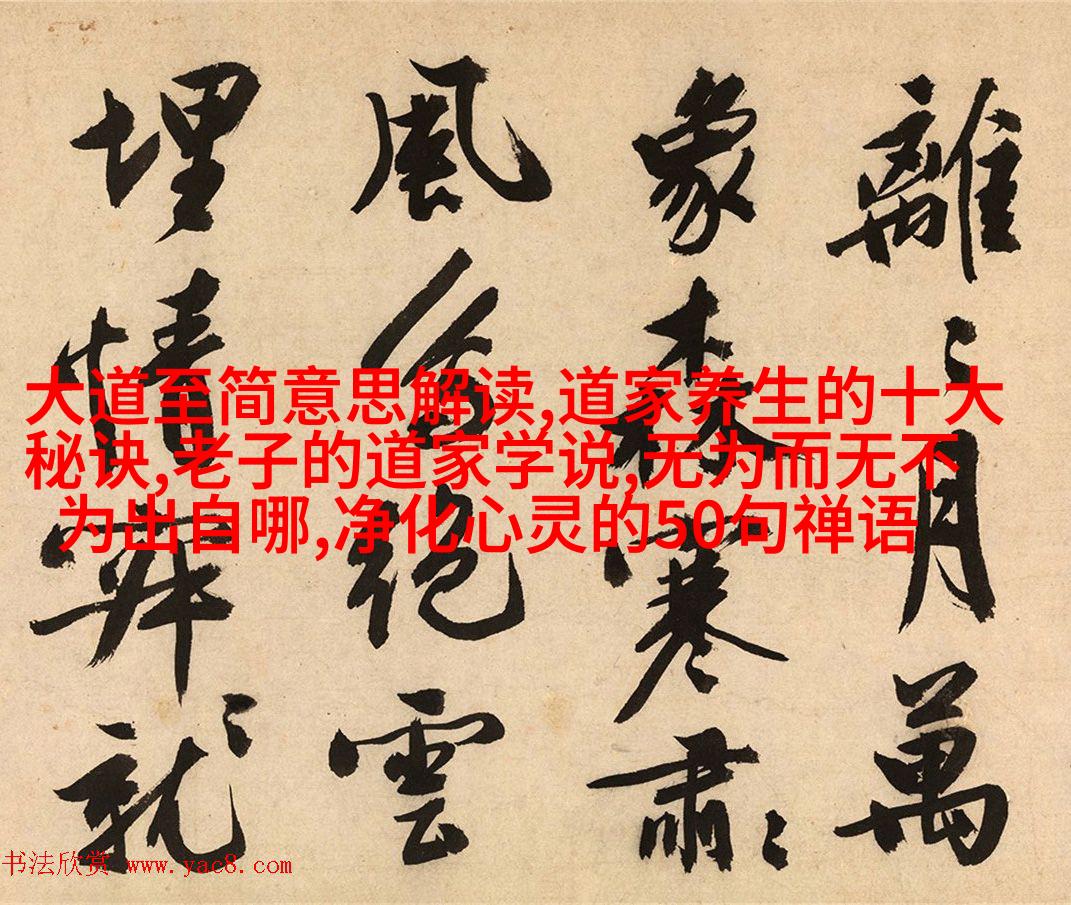 離〻月萬
象森寒肅〻
風絕雲
埋情就〻
大道至简意思解读,道家养生的十大
秘诀,老子的道家学说,无为而无不
为出自哪,净化心灵的50句禅语
书法欣赏 www.yac8.com